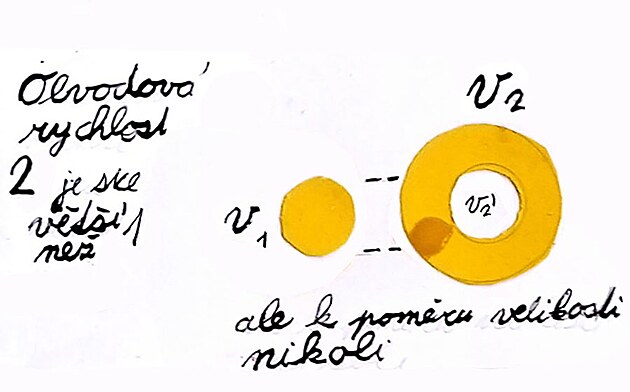 Obvodová
rychlost
2 je sice
větší 1
než
V₁
V₂
V₂'
ale k poměru velikosti
nikoli